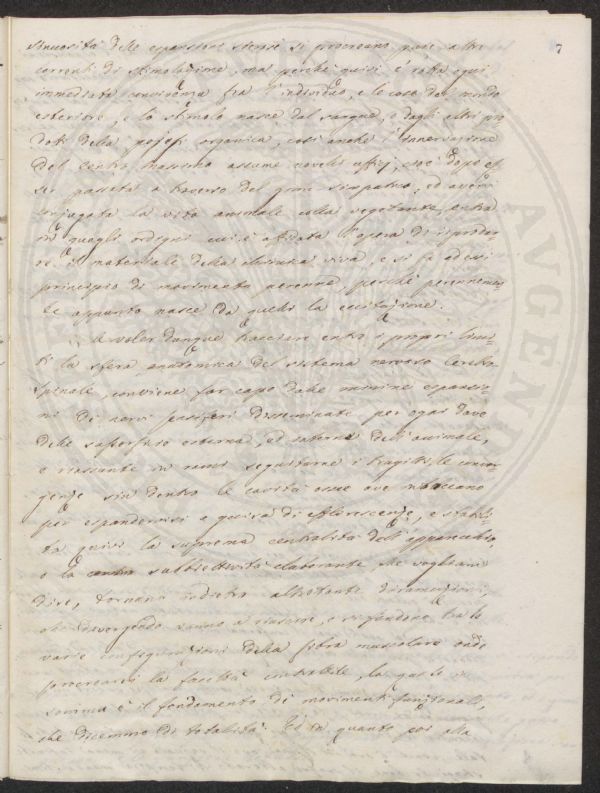 7
sinuosità delle espansioni stesse si procreano pure altre
correnti di stimolazione, ma perchè quivi è rotta ogni
immediata fra l'individuo, e le cose del mondo
esteriore, e lo stimolo nasce dal sangue, e dagli altri pro
dotti della organica, così anche l'innervazione
del centro massimo assume novelli uffizj, cioè dopo es
ser passata a traverso del gran simpatico, ed avervi
conjugata la vita animale colla vegetante, entra
in quegli ordigni cui è affidata l'opera di riprodur
re il materiale della viva, e si fa ad essi
principio di movimento perenne, perchè perennemen
te appunto nasce da quelli la eccitazione.
A voler dunque tracciare entro i propri limi
ti la sfera anatomica del sistema nervoso Cerebro
spinale, conviene far capo dalle minime espansio
ni di nervi disseminate per ogni dove
delle superficie esterna, ed interna dell'animale,
e riassunte in rami seguitarne i tragitti, le conver
genze sin dentro le cavità ossee ove
per espandervisi a guisa di efflorescenze, e stabili
ta quivi la suprema centralità dell'apparecchio,
o la subbiettività elaborante, che vogliam
dire, tornare indietro altrettante diramazioni,
che divergendo vanno a riuscire, e tra le
varie configurazioni della fibra muscolare onde
procrearvi la facoltà contrattile, la quale in
somma è il fondamento di movimenti funzionali,
che diremmo di totalità. Ed in quanto poi alla
AVGENDO